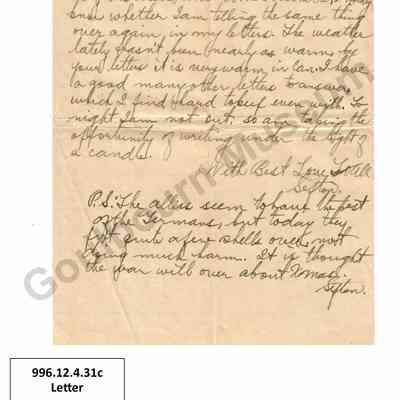 know whether I am telling the same thing
over again, in my letters. The weather
lately hasn't been nearly as warm, by
your letter it is very warm in Can. I have
a good many other letters to answer
which I find hard to keep even with. To
night I am not out, so am taking the
opportunity of writing under the light of
a candle.
With Best Love To All
Sefton.
P.S. The allies seem to have the best
of the Germans, but today they
put quite a few shells over, not
doing much harm. It is thought
the war will over about Xmas.
Sefton.
Gormburn Museum
996.12.4.31c
Letter